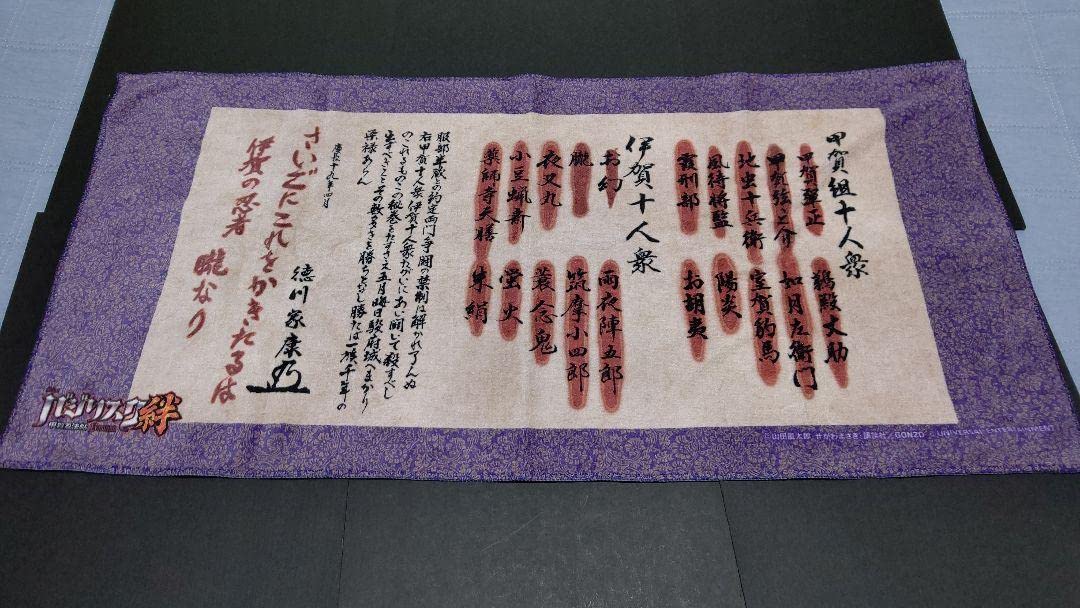 甲賀組十人衆
甲賀弾正
甲賀弦之介
地虫十兵衛
風待将監
霞刑部
鵜殿丈助
如月左衛門
室賀豹馬
陽炎
お胡夷
伊賀十人衆
お幻
朧
夜叉丸
小豆蝋斎
薬師寺天膳
雨夜陣五郎
筑摩小四郎
蓑念鬼
蛍火
朱絹
服部半蔵との約定両門争闘の禁制は解かれ了んぬ
右甲賀十人衆伊賀十人衆たがいにあい闘いて殺すべし
のこれるものこの秘巻をたずさえ五月晦日駿府城へまかり
出ずべきことその数多きを勝ちとなし勝たば一族千年の
栄禄あらん
慶長十九年四月
徳川家康
さいごにこれをかきたるは
伊賀の忍者 朧なり
バジリスク 絆
甲賀忍法帖
©山田風太郎・せがわまさき・講談社/GONZO © UNIVERSAL ENTERTAINMENT